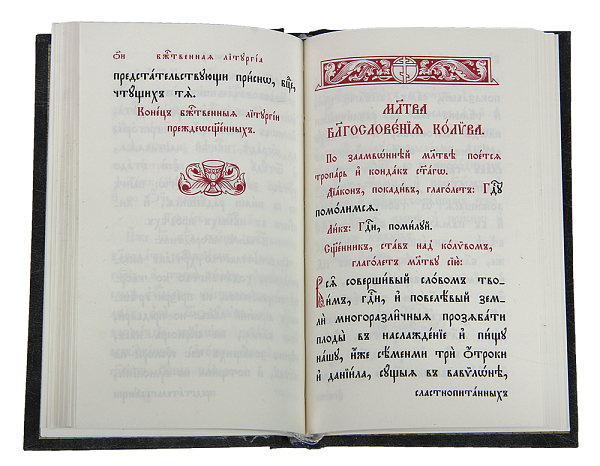 он бж҃твенная літꙋргіа
предста́тельствующи при́снѡ, бц҃е,
чтꙋ́щихъ тѧ̀.
Коне́цъ бж҃твенныѧ літꙋргі́и
преждеѡсщ҃е́нныхъ.
МЛ҃ТВА
БЛ҃ГОСЛОВЕ́НІѦ КОЛИ́ВА.
По заамво́ннѣй мл҃твѣ пое́тсѧ
тропа́рь и҆ конда́къ ст҃а́гѡ.
Діа́конъ, покади́въ, глаго́летъ: Гдⷭ҇ꙋ
помо́лимсѧ.
Ли́къ: Гдⷭ҇и, поми́лꙋй.
Сщ҃е́нникъ, ста́въ над̾ коли́вомъ,
глаго́летъ мл҃твꙋ сїю̀:
Всѧ̑ соверши́вый сло́вомъ тво-
и́мъ, гдⷭ҇и, и҆ повелѣ́вый зем-
лѝ многоразли́чныѧ прозѧба́ти
плоды̀ въ наслажде́нїе и҆ пи́щꙋ
на́шꙋ, и҆́же сѣ́менми трѝ ѻ҆́троки
и҆ данїи́ла, сꙋ́щыѧ въ вавѷлѡ́нѣ,
сластнопита́нныхъ